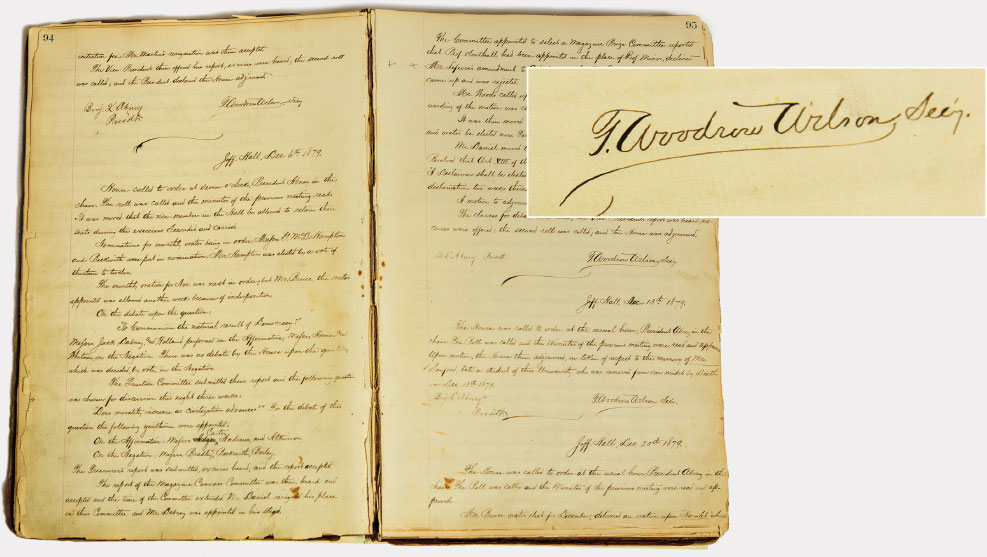 94
resignation was then accepted
The Vice President then offered his report, excuses were heard, the second roll
was called, and the President declared the House adjourned
Benj. L. Abney
Presdt.
T. Woodrow Wilson, Secy
Jeff. Hall, Dec. 6th 1879.
House called to order at seven o'clock, President Abney in the
chair. The roll was called and the minutes of the previous meeting read.
It was moved that the new members in the Hall be allowed to retain their
seats during the exercises. Seconded and carried
Nominations for monthly orator being in order Messrs
and were put in nomination. Mr. was elected by a vote of
thirteen to twelve.
The monthly oration for Nov. was next in order, but Mr. Bruce, the orator
appointed was allowed another week because of indisposition.
On the debate upon the question:
"Is Communism the natural result of Democracy?"
Messrs Jack Dabney, and Holland performed on the Affirmative; Messrs
on the Negative. There was no debate by the House upon the question
which was decided, by vote, in the Negative.
The Question Committee submitted their report and the following question
was chosen for discussion this night three weeks:
"Does morality increase as civilization advances?" For the debate of this
question the following gentlemen were appointed.
On the Affirmative: Messrs Andrews, and Atkinson
On the Negative; Messrs Bradley,
The Treasurer's report was submitted, excuses heard, and the report accepted
The report of the Magazine Committee was then heard and
accepted and the time of the Committee extended. Mr. Daniel resigned his place
on this Committee and Mr. Dabney was appointed in his stead.
95
The Committee appointed to select a Magazine Prize Committee reported
that Prof. Southall had been appointed in the place of Prof. Minor, declined
Mr. amendment to
came up and was rejected.
Mr. Woods called up
wording of the motion was
It was then moved
and orator be elected
Mr. Daniel moved
Resolved that Art. VIII of the
A Declaimer shall be elected
declamation
A motion to adjourn
The classes for debate
report was heard, ex-
cuses were offered, the second roll was called, and the House was adjourned.
Abney Presdt
T. Woodrow Wilson, Secy.
Jeff. Hall Dec. 13th 1879.
The House was called to order at the usual hour, President Abney in the
chair. The Roll was called and the Minutes of the previous meeting were read and
Upon motion, the House then adjourned, as token of respect to the memory of Mr.
Sanford late a student of this University, who was removed from our midst by Death
on Dec. 13th 1879.
Benj. L. Abney
Presdt.
T. Woodrow Wilson Secy.
Jeff. Hall, Dec. 20th 1879.
The House was called to order at the usual hour President Abney in the
chair. The Roll was called and the Minutes of the previous meeting were read and ap-
proved.
Mr. Bruce orator elect for December, delivered an oration upon
T. Woodrow Wilson, Secy.